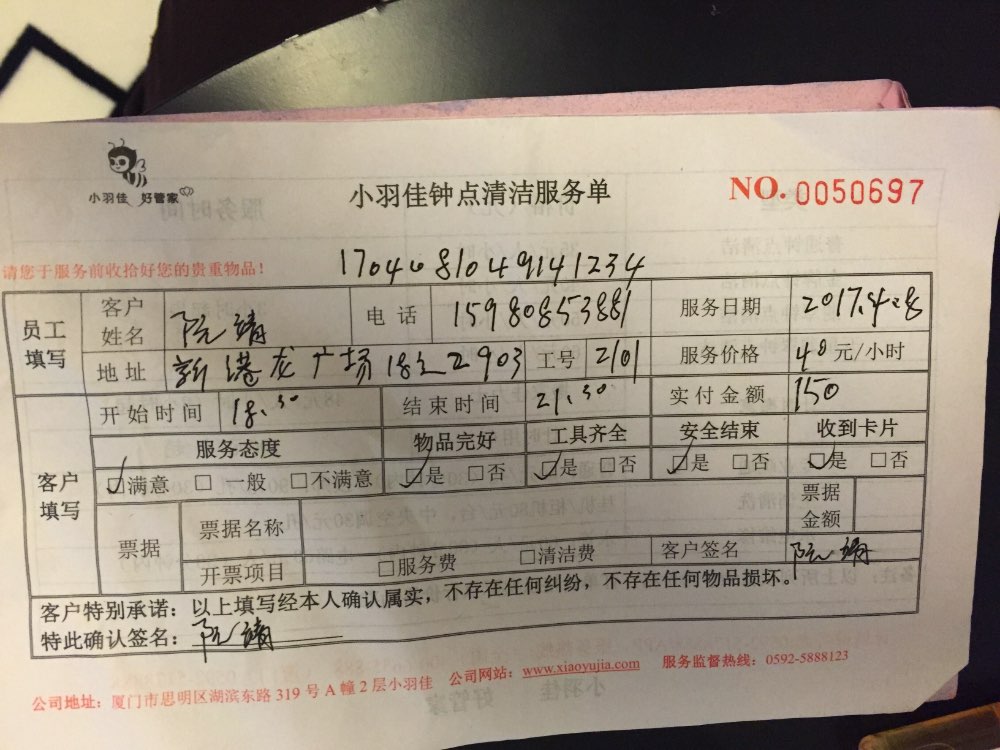 小羽佳 好管家
小羽佳钟点清洁服务单
NO. 0050697
请您于服务前收拾好您的贵重物品！
1704081049141234
员工填写 客户姓名 阮靖 电话 15980853881 服务日期 2017.4.28
地址 新港龙广场18 2903 工号 2101 服务价格 40 元/小时
客户填写 开始时间 18.30 结束时间 21.30 实付金额 150
服务态度 物品完好 工具齐全 安全结束 收到卡片
☑满意 □ 一般 □不满意 ☑是 □否 ☑是 □否 ☑是 □否 ☑是 □否
票据 票据名称 票据金额
开票项目 □服务费 □清洁费 客户签名 阮靖
客户特别承诺：以上填写经本人确认属实，不存在任何纠纷，不存在任何物品损坏。
特此确认签名：阮靖
公司地址：厦门市思明区湖滨东路 319 号 A 幢 2 层小羽佳 公司网站：www.xiaoyujia.com 服务监督热线：0592-5888123